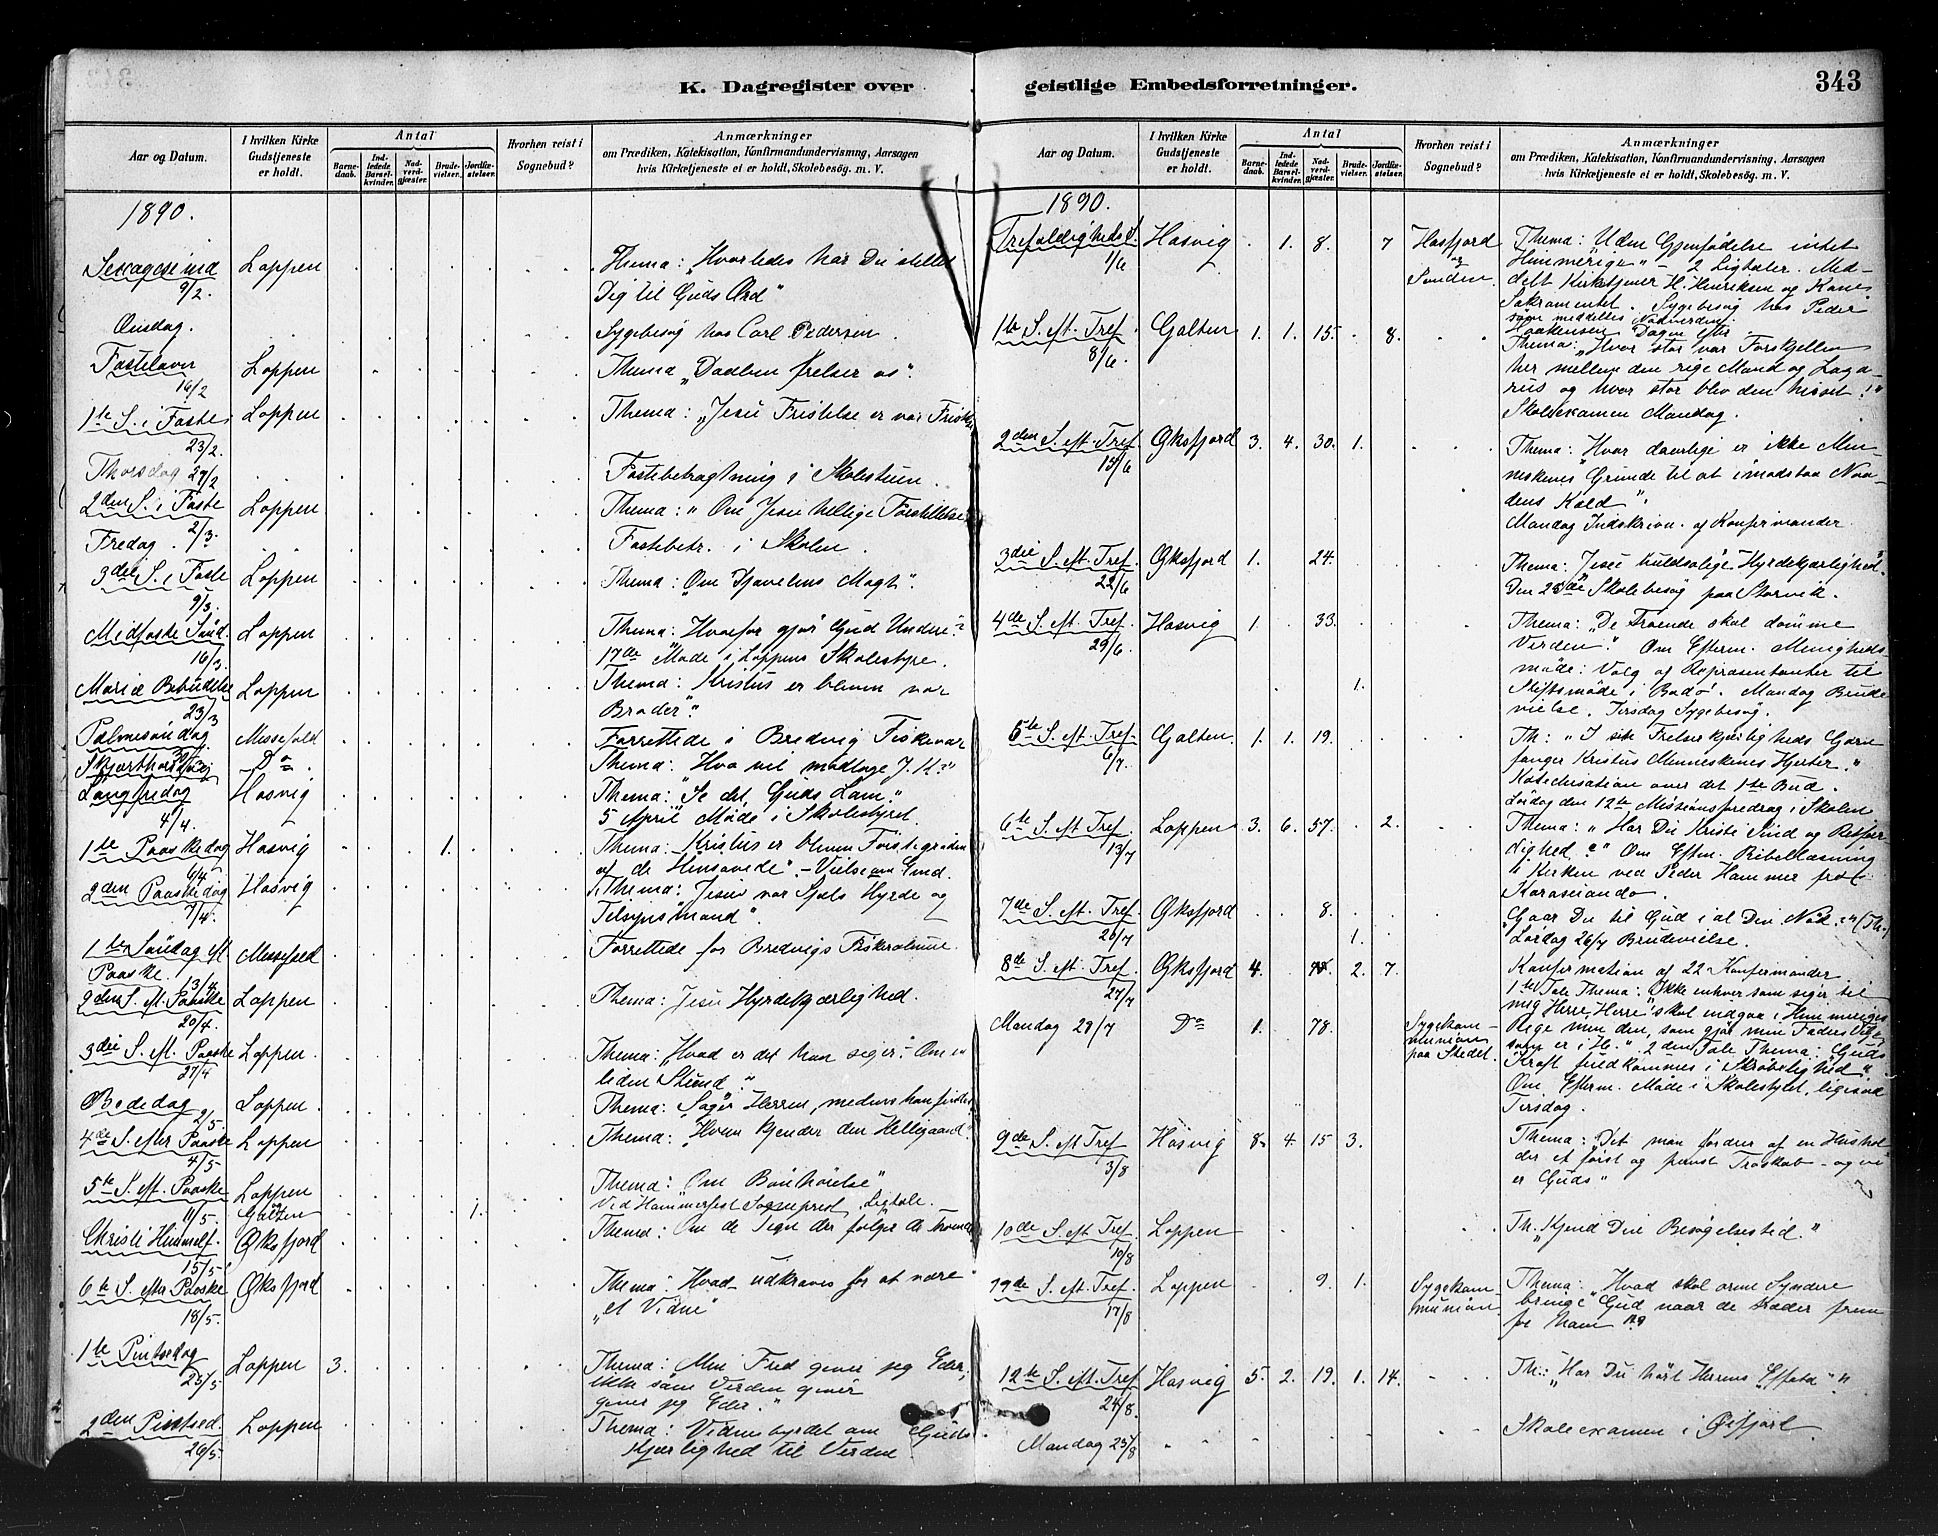 K. Dagregister over
geistlige Embedsforretninger.
343
Aar og Datum.
I hvilken Kirke Gudstjeneste er holdt.
Antal
Barnedaab.
Indledede Barselkvinder.
Nadverdgjæster.
Brudevielser.
Jordfæstelser.
Hvorhen reist i Sognebud?
Anmærkninger
om Prædiken, Katekisation, Konfirmandundervisning, Aarsagen
hvis Kirketjeneste ei er holdt, Skolebesøg. m. V.
1890.
Sexagesima 9/2. Loppen Thema: "Hvorledes har Du stillet
Dig til Guds Ord"
Onsdag. Sygebesøg hos Carl Pedersen
Fastelavn 16/2 Loppen Thema "Daaben frelser os"
1te S. i Faste 23/2. Loppen Thema: "Jesu Fristelse er vor
Thorsdag 27/2 Fastebetragtning i Skolestuen.
2den S. i Faste 2/3. Loppen Thema: "Om Jesu hellige
Fredag. Fastebetr. i Skolen.
3die S. i Faste 9/3. Loppen Thema: "Om Djævelens Magt".
Midfaste Sønd. 16/3. Loppen Thema: "Hvorfor gjør Gud Undere?"
17de Møde i Loppens Skolestyre.
Mariæ Bebudelse 23/3 Loppen Thema: "Kristus er bleven vor
Broder".
Palmesøndag Forrettede i Bredvig Fiskevær
Skjærthorsdag Do. Thema: "Hva vil modtage J. K?"
Langfredag 4/4. Hasvig Thema: "Se det Guds Lam."
5 April Møde i Skolestyret.
1te Paaskedag 6/4 Hasvig 1. Thema: Kristus er bleven Førstegrøden
af de Hensovede". - Vielse
2den Paaskedag 7/4. Hasvig Thema: Jesus vor Sjæls Hyrde og
Tilsynsmand".
1te Søndag ef. Paaske. 13/4 Forrettede for Bredvigs
2den S. ef. Paaske 20/4. Loppen Thema: Jesu Hyrdekjærlighed.
3die S. eft. Paaske 27/4 Loppen. Thema: "Hvad er det han siger: - Om en
liden Stund".
Bededag 2/5. Loppen. Thema: Søger Herren, medens han findes
4de S. efter Paaske 4/5 Loppen Thema: "Hvem kjender den Helligaand".
5te S. eft. Paaske 11/5. Loppen Thema: Om Bønhørelse"
Galten 1. Ved Hammerfest Sogneprest, Ligtale.
Christi Himmelf. 15/5. Øksfjord Thema: Om de Tegn der følger de Troende
6te S. efter Paaske 18/5. Øksfjord Thema: Hvad udkræves for at være
"et Vidne"
1te Pintsedag 25/5 Loppen 3. Thema: Min Fred giver jeg Eder,
ikke som Verden giver
giver jeg Eder."
2den Pintsed. 26/5. Loppen Thema: Vidnesbyrdet om Guds
Kjærlighed til Verden
Aar og Datum.
I hvilken Kirke Gudstjeneste er holdt.
Antal
Barnedaab.
Indledede Barselkvinder.
Nadverdgjæster.
Brudevielser.
Jordfæstelser.
Hvorhen reist i Sognebud?
Anmærkninger
om Prædiken, Katekisation, Konfirmandundervisning, Aarsagen
hvis Kirketjeneste ei er holdt, Skolebesøg. m. V.
1890.
Trefoldigheds 1/6 Hasvig 1. 8. 7 Hasfjord og Sanden Thema: "Uden Gjenfødelse intet
Himmerige" - 2 Ligtaler. Med-
delt Kirketjener H. Henriksen og Kone
Sakramentet. Sygebesøg hos Peder
Haakensen Dagen efter
1te S. eft. Tref. 8/6. Galten 1. 1. 15. 8. Thema: "Hvor stor var Forskjellen
her mellem den rige Mand og Laza-
rus og hvor stor blev den hisset!"
Skoleexamen Mandag.
2den S. eft. Tref. 15/6 Øksfjord 3. 4. 30. 1. Thema: "Hvor daarlige er ikke Men-
neskenes Grunde til at imodstaa Naa-
dens Kald".
Mandag Indskrivn. af Konfirmander.
3die S. eft. Tref. 22/6 Øksfjord 1. 24. Thema: Jesu huldsalige Hyrdekjærlighed.
Den 23de Skolebesøg paa Storvik.
4de S. eft. Tref. 29/6 Hasvig 1. 33. Thema: "De Troende skal dømme
Verden". Om Efterm. Menigheds-
møde: Valg af Repræsentanter til
1. Stiftsmøde i Bodø. Mandag Brude
vielse. Tirsdag Sygebesøg.
5te S. eft. Tref. 6/7. Galten. 1. 1. 19. Th: "I sit Frelserkjærligheds Garn
fanger Kristus Menneskenes Hjerter."
Katechisation over det 1te Bud.
Lørdag den 12te Missionsforedrag i Skolen
6te S. eft. Tref. 13/7 Loppen 3. 6. 57. 2. Thema: "Har Du Kristi Sind og Retfær-
dighed?" Om Eftm. Bibellæsning
i Kirken ved Peder Hammer fra
7de S. eft. Tref. 20/7 Øksfjord 8. Gaar Du til Gud i al Din Nød?" (Th.)
1. Lørdag 26/7 Brudevielse.
8de S. eft. Tref. 27/7 Øksfjord 4. 2. 7. Konfirmation af 22 Konfirmander
1te Tale Thema: Ikke enhver som siger til
mig Herre, Herre, skal indgaa i Himmeriges
Mandag 28/7 Do 1. 78. Sygekommunion paa Stedet. Rige men den, som gjør min Faders Vilje
som er i H." 2den Tale Thema: "Guds
Kraft fuldkommes i Skrøbelighed"
Om Efterm. Møde i Skolestyret, ligesaa
Tirsdag.
9de S. eft Tref. 3/8 Hasvig 8. 4. 15 3. Thema: "Det man fordrer af en Hushol-
der et først og fremst Troskab - og vi
er Guds"
10de S. eft Tref. 10/8 Loppen Th. "Kjend Din Besøgelsestid."
S. eft. Tref. 17/8 Loppen 9. 1. Sygekommunion. Thema: Hvad skal arme Syndere
bringe Gud naar de træder frem
for ham?
12te S. eft. Tref. 24/8. Hasvig 5. 2. 19. 1. 14. Th.: "Har Du hørt Herrens Effata"
Mandag 25/8 Skoleexamen i